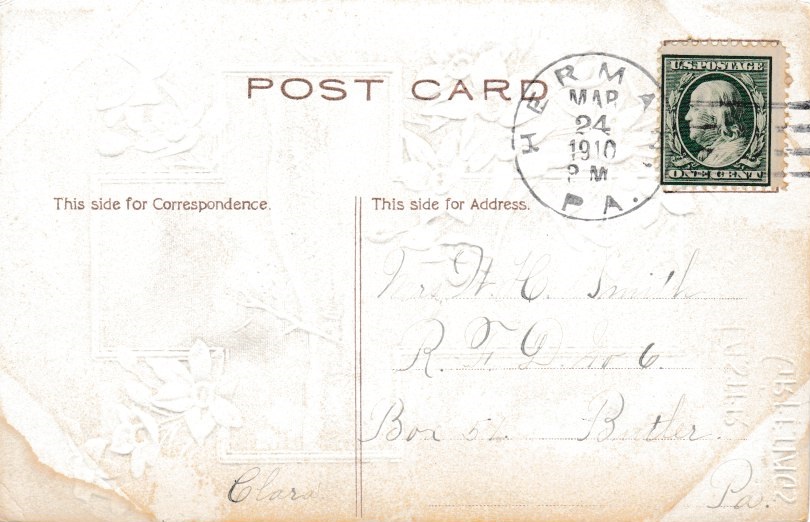 POST CARD
HERMAN
MAR
24
1910
P M
PA.
U.S.POSTAGE
ONE CENT
This side for Correspondence.
This side for Address.
Mrs W. C. Smith
R. F. D No 6.
Box 52. Butler.
Pa.
Clara